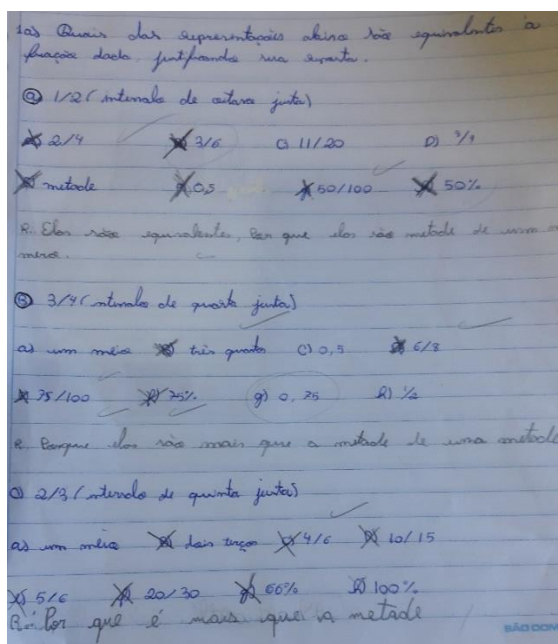 1a) Quais das representações abaixo são equivalentes à
fração dada, justificando sua resposta.
a) 1/2 (intervalo de oitava justa)
a) 2/4 b) 3/6 c) 11/20 D)
e) metade f) 0,5 g) 50/100 h) 50%
R. Elas são equivalentes, por que elas são metade de um
B) 3/4 (intervalo de quarta justa)
a) um meio b) três quartos c) 0,5 d) 6/8
e) 75/100 f) 75% g) 0,75 h) 1/2
R. Porque elas são mais que a metade de uma metade
c) 2/3 (intervalo de quinta justa)
a) um meio b) dois terços c) 4/6 D) 10/15
e) 5/6 f) 20/30 g) 66% h) 100%
R: Por que é mais que a metade
SÃO DOM